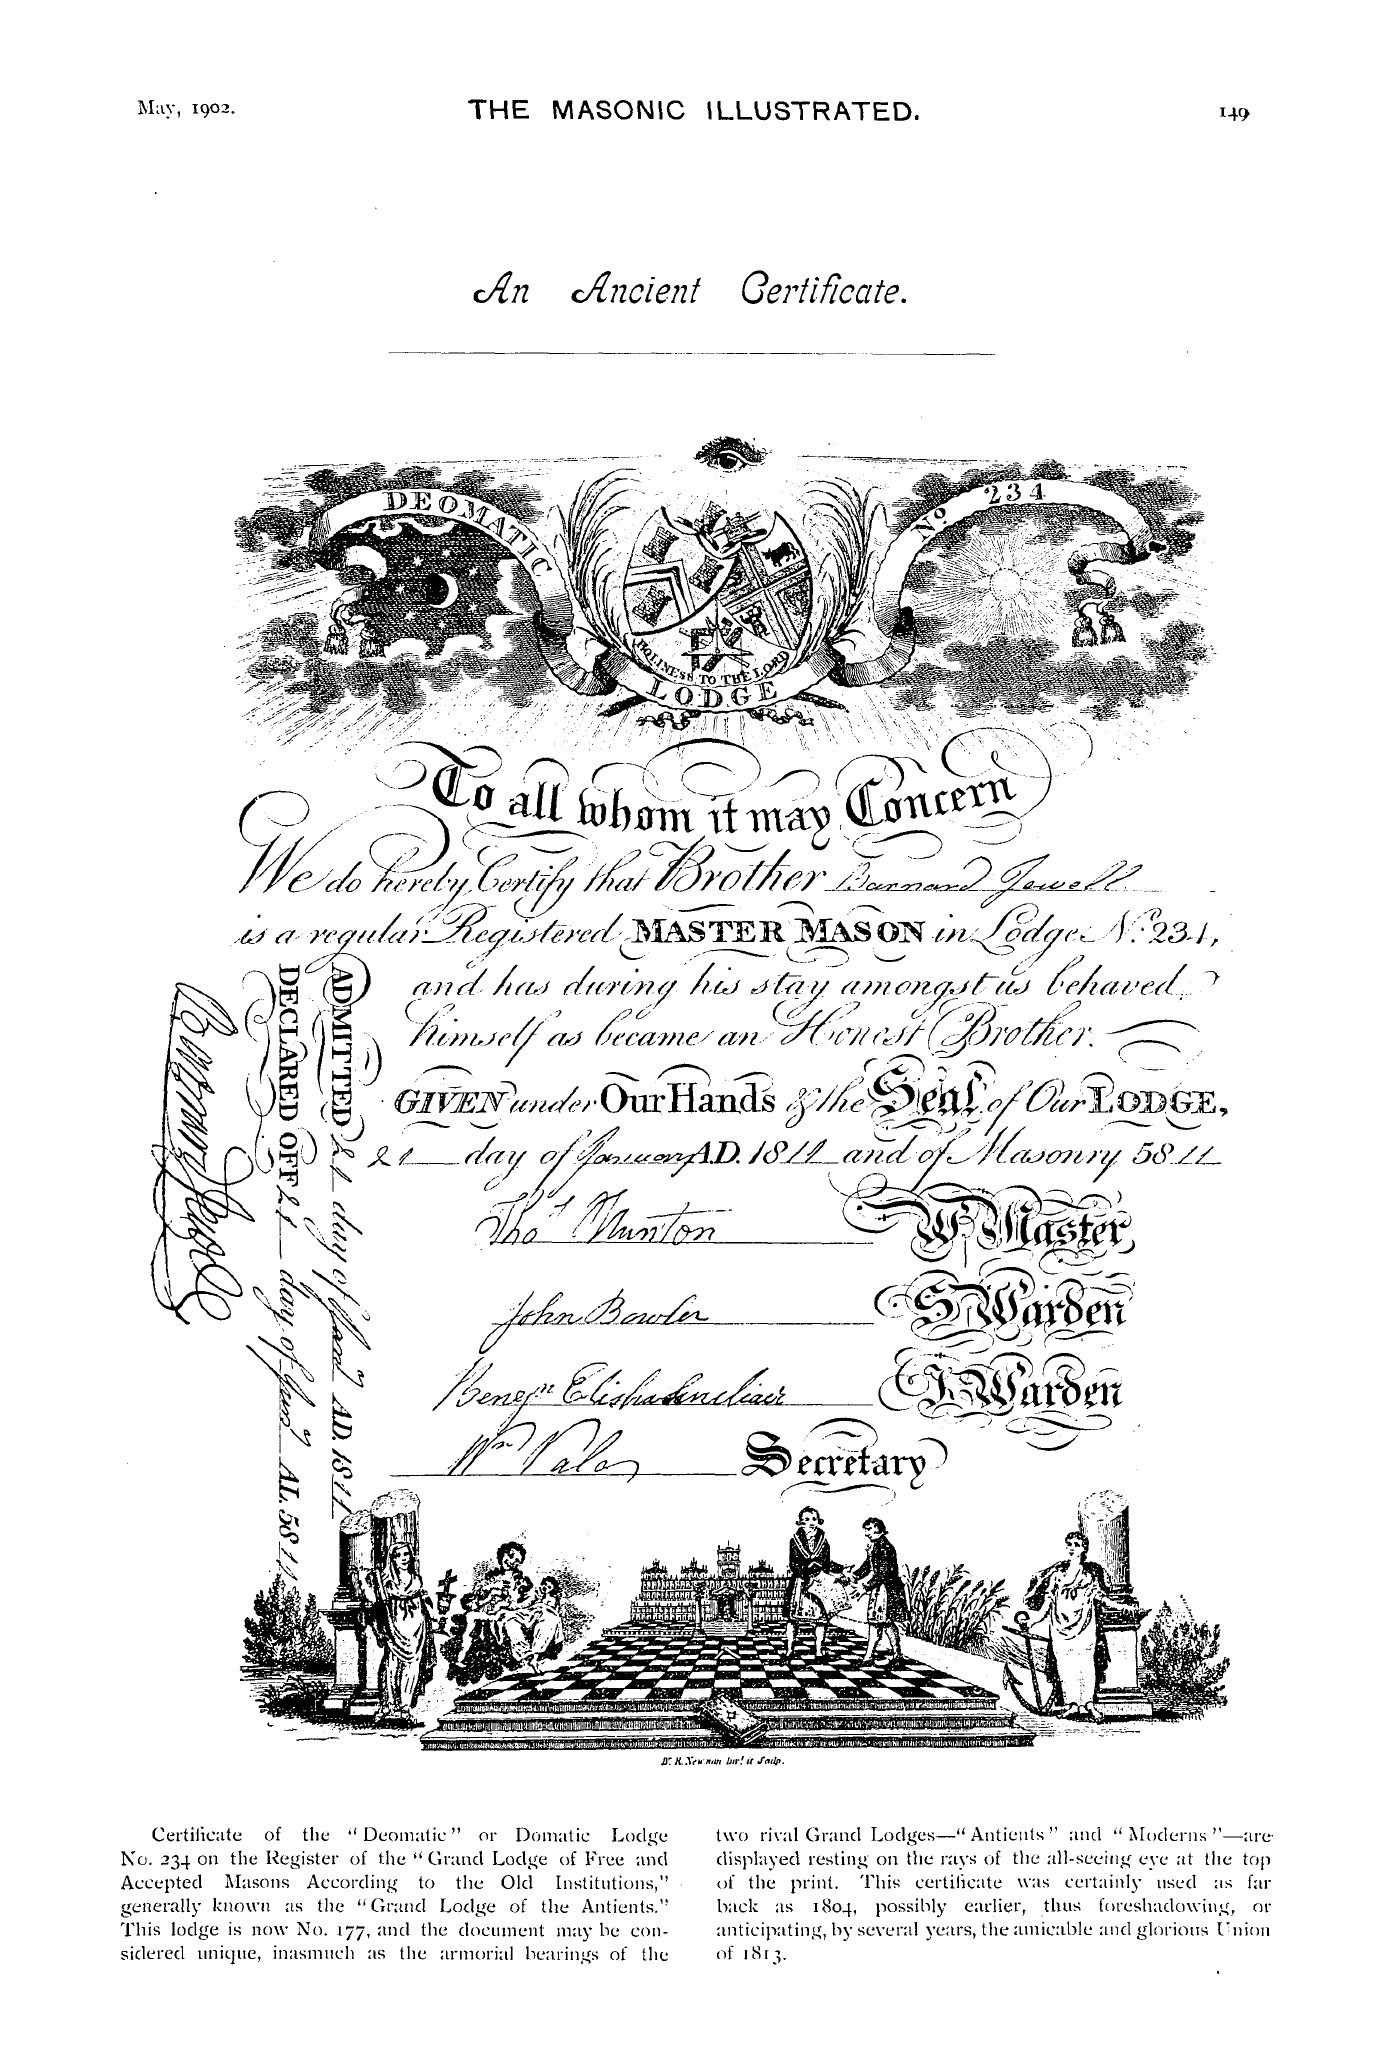 May, 1902.
THE MASONIC ILLUSTRATED.
149
An Ancient Certificate.
DEOMATIC
No. 234
HOLINESS TO THE LORD
LODGE
To all whom it may Concern
We do hereby Certify that Brother Barnard Jewell
is a regular Registered MASTER MASON in Lodge No. 234,
and has during his stay amongst us behaved
himself as became an Honest Brother.
GIVEN under Our Hands & the Seal of Our LODGE,
21 day of January A.D. 1811 and of Masonry 5811
Thos Nunton W. Master
John Bowler S. Warden
Benjn Elisha Sincliair J. Warden
Wm Secretary
ADMITTED 21 day of Jany AD. 1811
DECLARED OFF 21 day of Jany AL. 5811
Barnard Jewell
Certificate of the "Deomatic" or Domatic Lodge
No. 234 on the Register of the "Grand Lodge of Free and
Accepted Masons According to the Old Institutions,"
generally known as the "Grand Lodge of the Antients."
This lodge is now No. 177, and the document may be con-
sidered unique, inasmuch as the armorial bearings of the
two rival Grand Lodges—"Antients" and "Moderns"—are
displayed resting on the rays of the all-seeing eye at the top
of the print. This certificate was certainly used as far
back as 1804, possibly earlier, thus foreshadowing, or
anticipating, by several years, the amicable and glorious Union
of 1813.